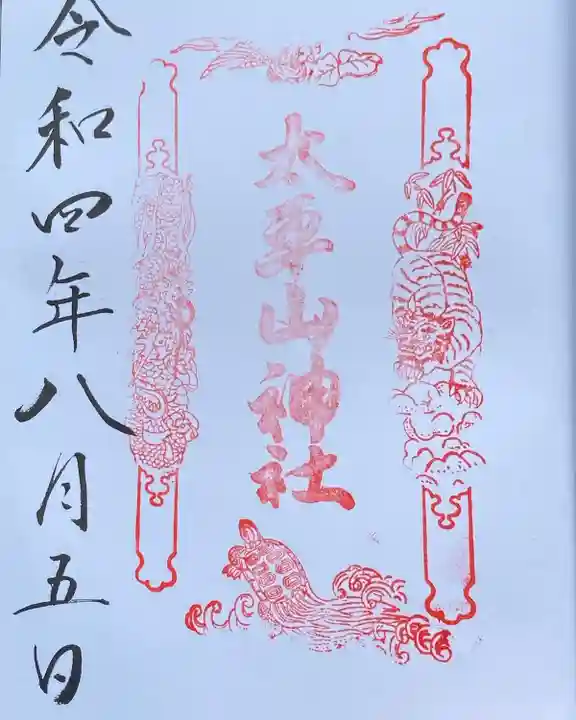 太平山神社
令和四年八月五日